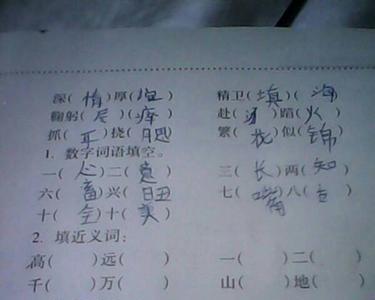 深( 情 )厚( 谊 ) 精卫( 填 )( 海 )
鞠躬( 尽 )( 瘁 ) 赴( 汤 )蹈( 火 )
抓( 耳 )挠( 腮 ) 繁( 花 )似( 锦 )
1. 数字词语填空。
一( 心 )二( 意 ) 三( 长 )两( 知 )
六( 畜 )兴( 旺 ) 七( 嘴 )八( 舌 )
十( 全 )十( 美 )
2. 填近义词:
高( )远( ) 一( )二( )
千( )万( ) 山( )地( )